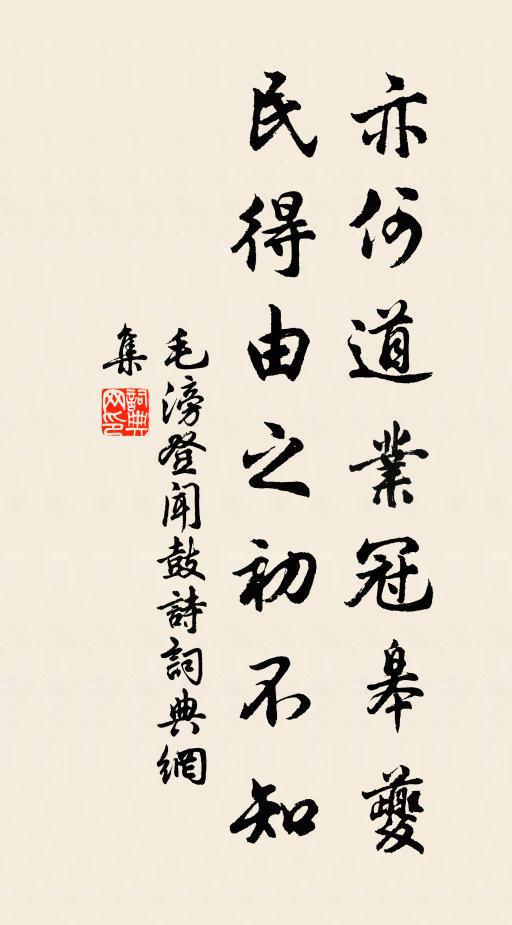 亦何道業冠皋夔
民得由之初不知
毛滂登聞鼓詩詞典網
集
詞典
网印